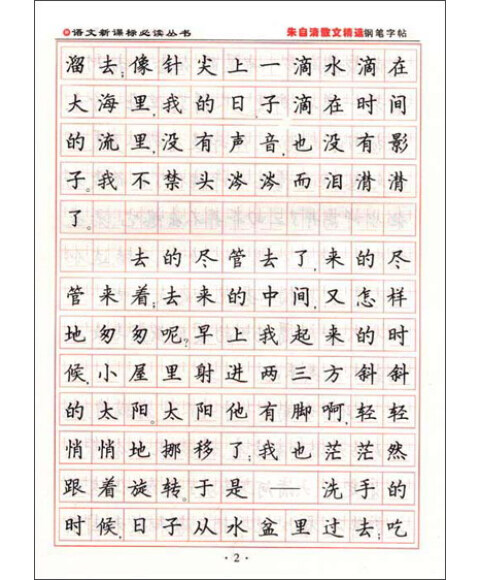 语文新课标必读丛书 朱自清散文精选钢笔字帖
溜去;像针尖上一滴水滴在
大海里,我的日子滴在时间
的流里,没有声音,也没有影
子。我不禁头涔涔而泪潸潸
了。
去的尽管去了,来的尽
管来着;去来的中间,又怎样
地匆匆呢?早上我起来的时
候,小屋里射进两三方斜斜
的太阳。太阳他有脚啊,轻轻
悄悄地挪移了;我也茫茫然
跟着旋转。于是——洗手的
时候,日子从水盆里过去;吃
·2·